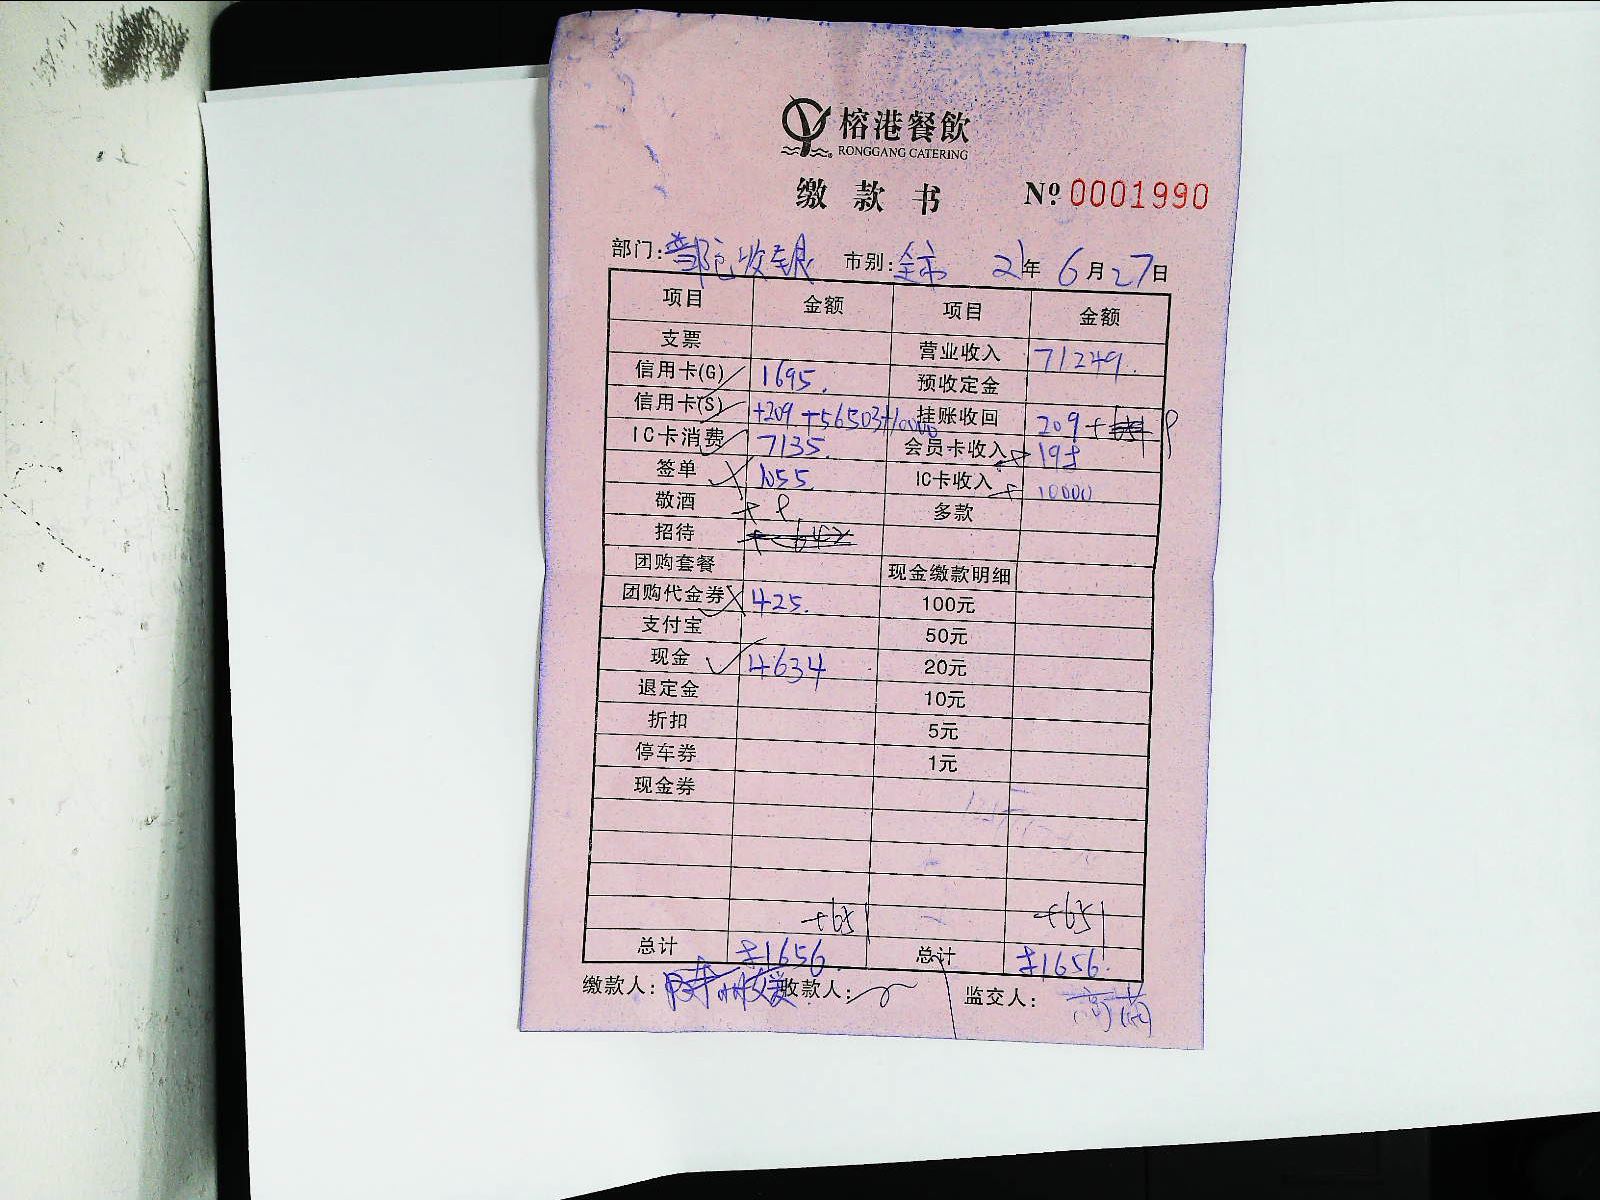 榕港餐飲
RONGGANG CATERING
缴款书 Nº 0001990
部门: 收银 市别: 全市 21年 6月27日
项目 金额 项目 金额
支票 营业收入 71249.
信用卡(G) 1695. 预收定金
信用卡(S) +209 +56503+10000 挂账收回 209+
IC卡消费 7135. 会员卡收入 198
签单 1055 IC卡收入 10000
敬酒 多款
招待
团购套餐 现金缴款明细
团购代金券 425. 100元
支付宝 50元
现金 4634 20元
退定金 10元
折扣 5元
停车券 1元
现金券
+651 +651
总计 81656. 总计 81656.
缴款人: 收款人: 监交人: